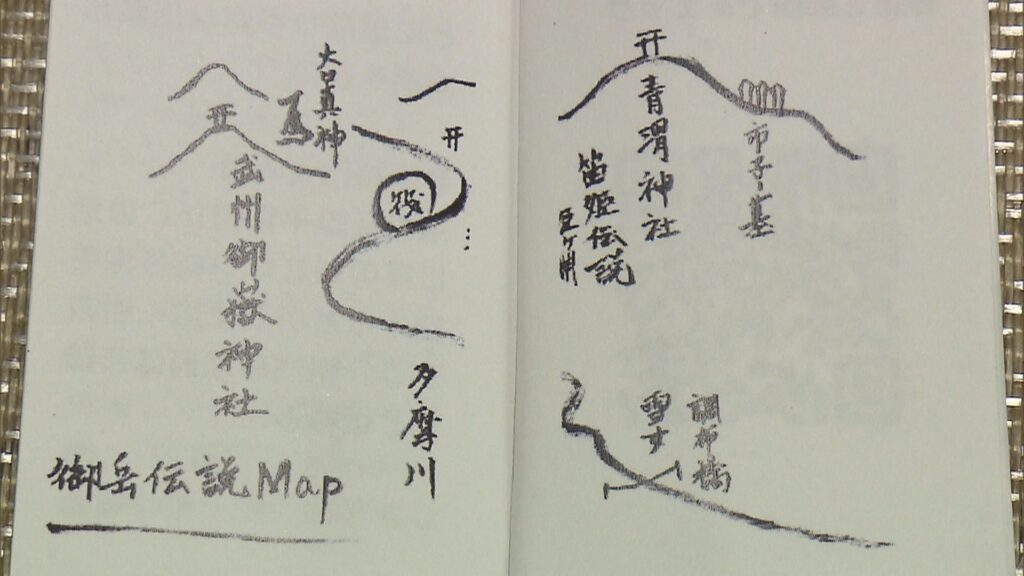 大口真神
武州御嶽神社
筏
多摩川
御岳伝説Map
青渭神社
市子ノ墓
笛姫伝説
調布橋
雪女